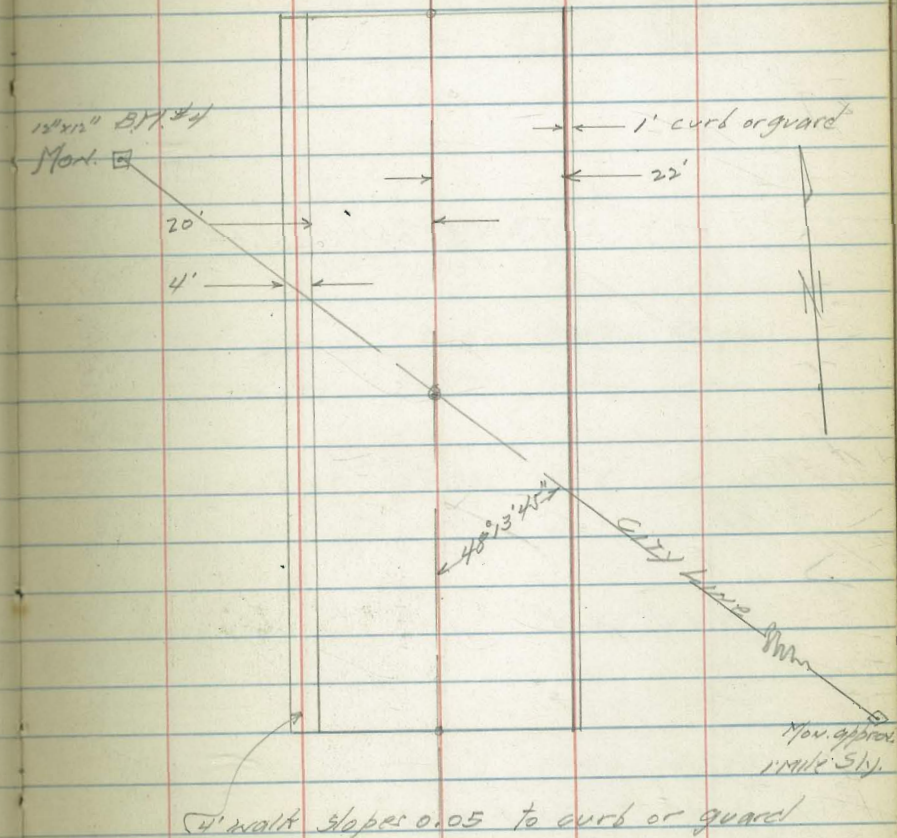 12"x12" B.M. #4
Mon.
1' curb or guard
22'
20'
4'
N
48°13'45"
City Line
Mon. approx.
1 Mile Sly.
4' walk slopes 0.05 to curb or guard